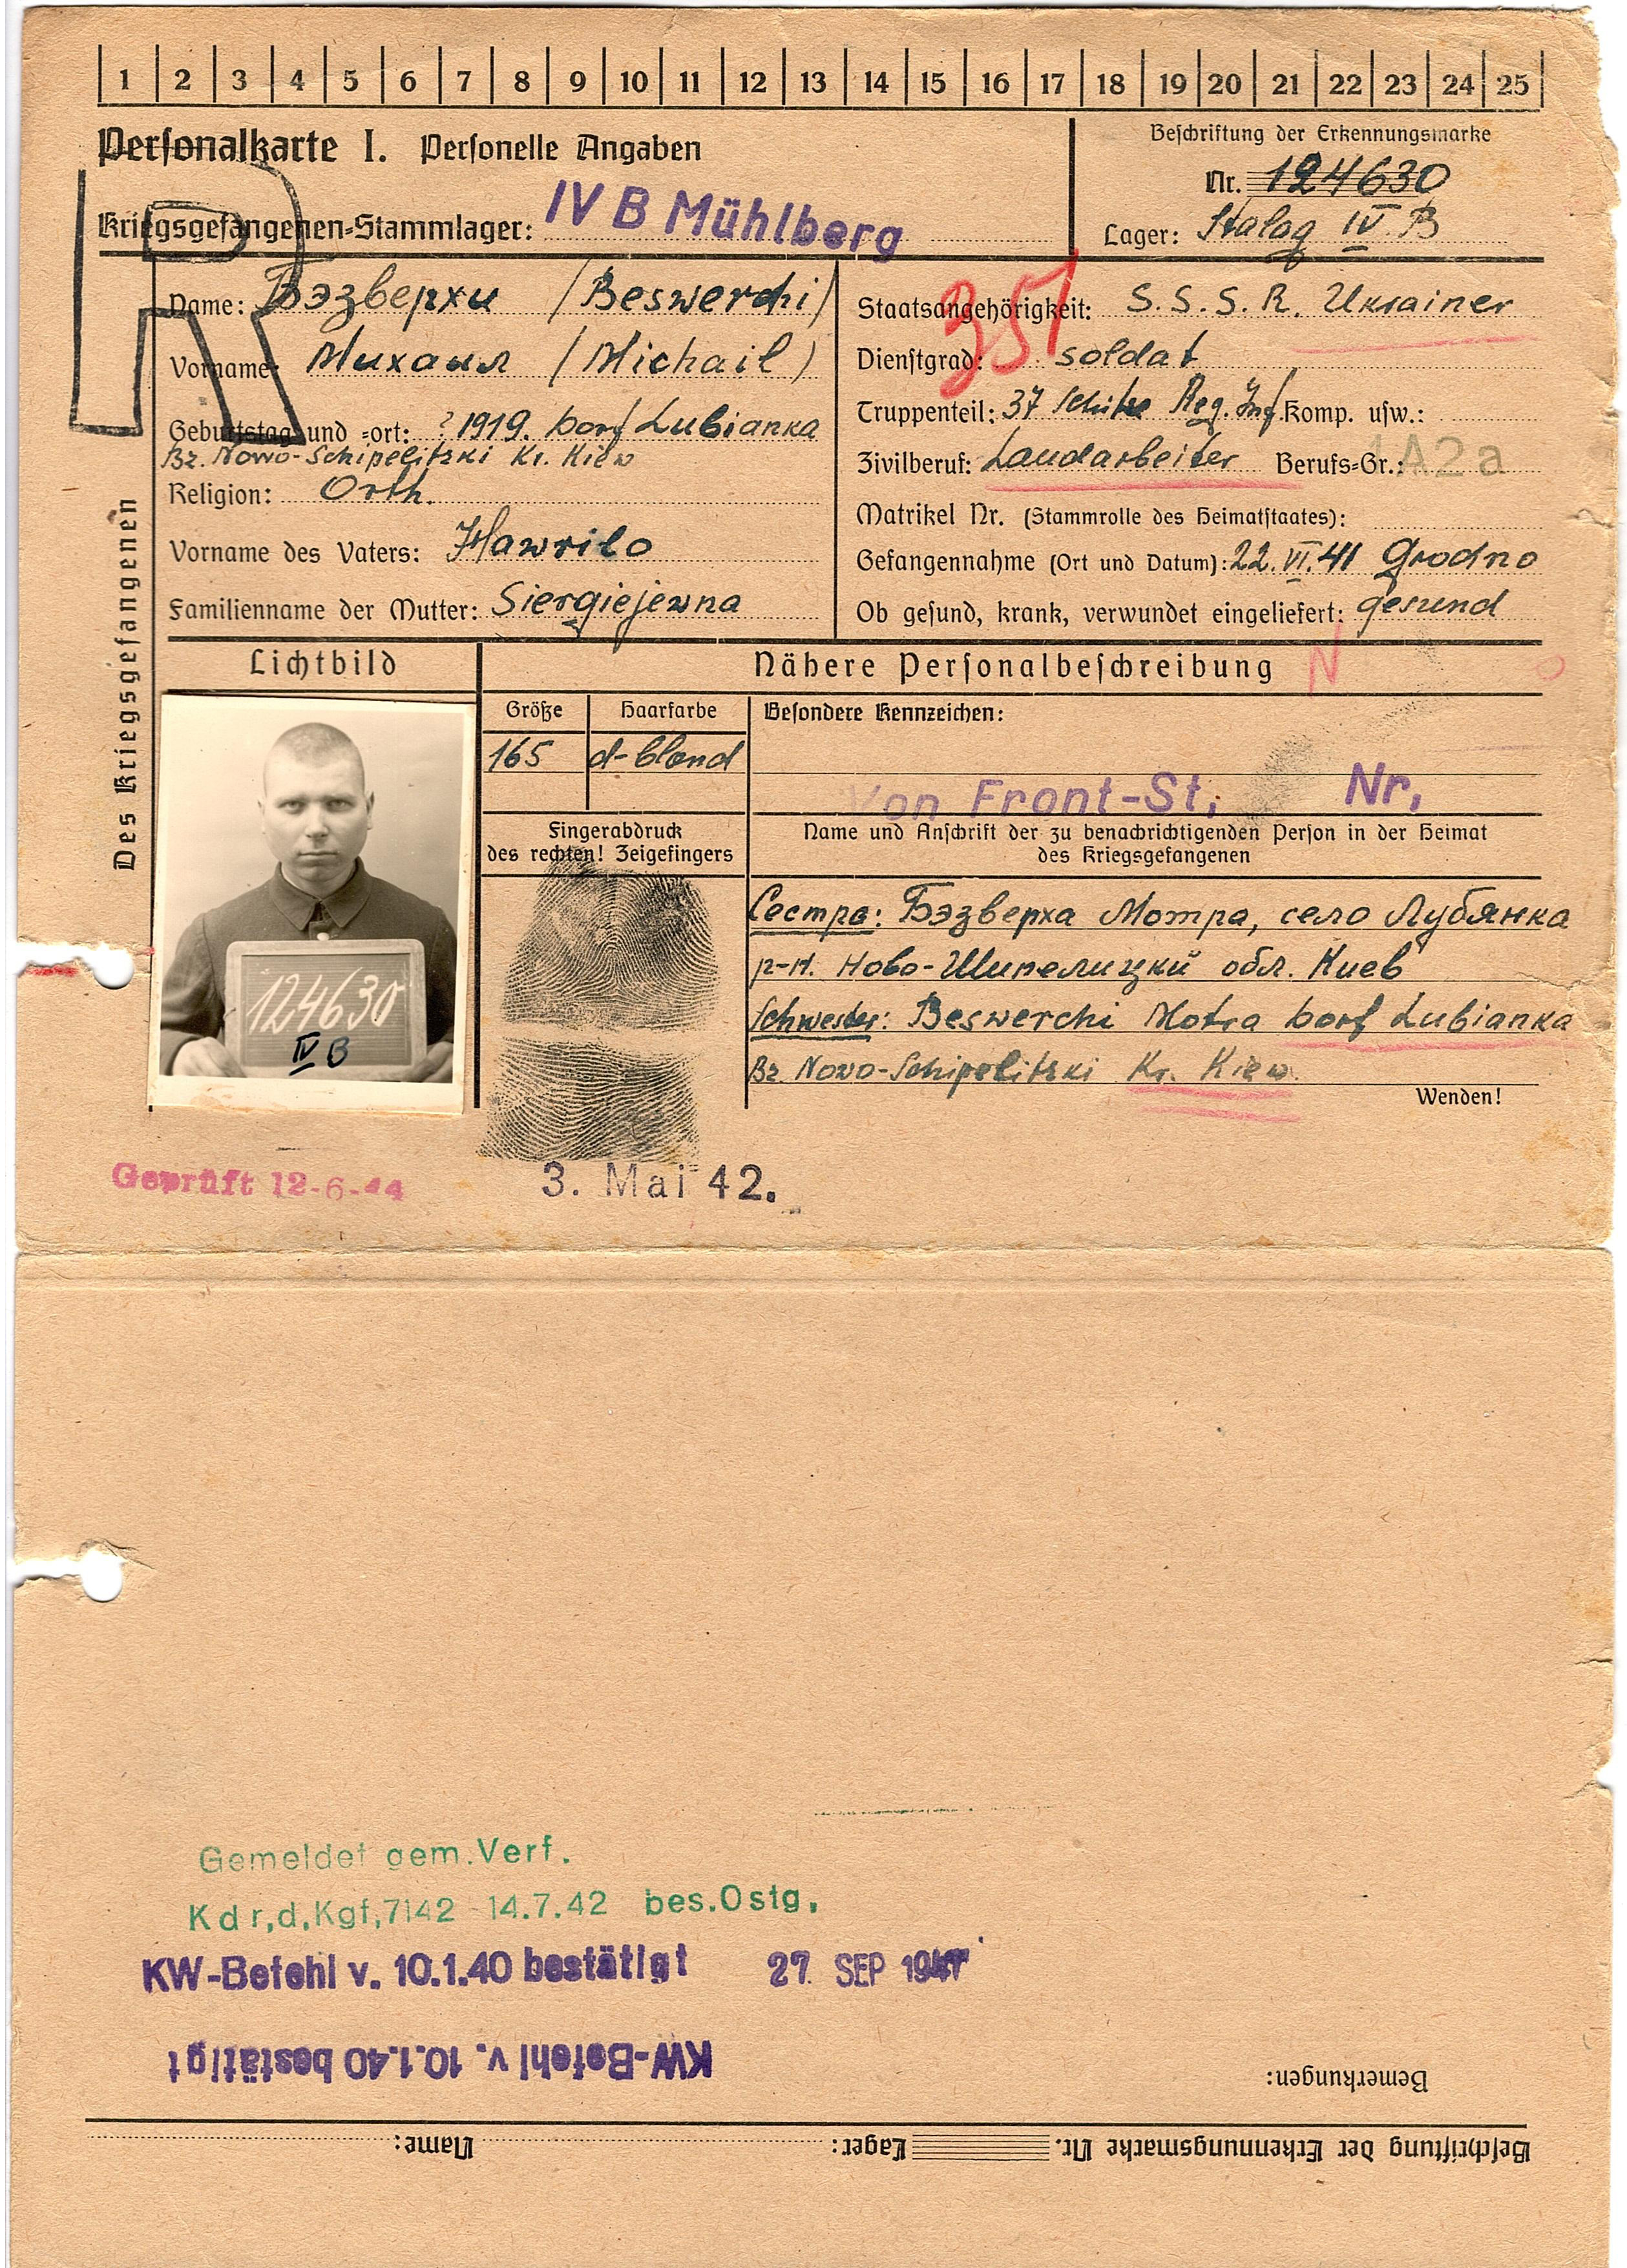 1 2 3 4 5 6 7 8 9 10 11 12 13 14 15 16 17 18 19 20 21 22 23 24 25
Personalkarte I. Personelle Angaben
Beschriftung der Erkennungsmarke
Nr. 124630
Kriegsgefangenen-Stammlager: IV B Mühlberg
Lager: Stalag IV B
R
Des Kriegsgefangenen
Name: Бэзверхи (Beswerchi)
Vorname: Михаил (Michail)
Geburtstag und -ort: ? 1919. Dorf Lubianka
Bz. Nowo-Schipelitzki Kr. Kiew
Religion: Orth.
Vorname des Vaters: Hawrilo
Familienname der Mutter: Siergiejewna
351
Staatsangehörigkeit: S.S.S.R. Ukrainer
Dienstgrad: Soldat
Truppenteil: 37 Schütze Reg. Inf. Komp. usw.:
Zivilberuf: Landarbeiter Berufs-Gr.: 1A2a
Matrikel Nr. (Stammrolle des Heimatstaates):
Gefangennahme (Ort und Datum): 22.VI.41 Grodno
Ob gesund, krank, verwundet eingeliefert: gesund
Lichtbild
Nähere Personalbeschreibung
N
Größe
Haarfarbe
Besondere Kennzeichen:
165
d-blond
Von Front-St, Nr,
Fingerabdruck
des rechten! Zeigefingers
Name und Anschrift der zu benachrichtigenden Person in der Heimat
des Kriegsgefangenen
124630
IV B
Сестра: Бэзверха Мотра, село Лубянка
р-н. Ново-Шипелицкий обл. Киев
Schwester: Beswerchi Motra Dorf Lubianka
Bz Nowo-Schipelitzki Kr. Kiew.
Wenden!
Geprüft 12-6-44
3. Mai 42.
Gemeldet gem. Verf.
Kdr,d,Kgf,7142 14.7.42 bes.Ostg,
KW-Befehl v. 10.1.40 bestätigt 27. SEP 194
KW-Befehl v. 10.1.40 bestätigt
Bemerkungen:
Beschriftung der Erkennungsmarke Nr. Lager: Name: